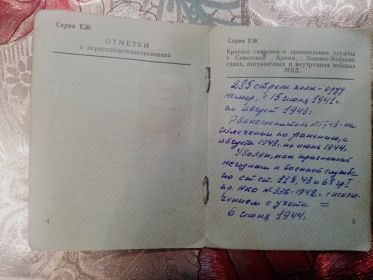 Серия ЕЖ
ОТМЕТКИ
о переосвидетельствованиях
4
Серия ЕЖ
Краткие сведения о прохождении службы
в Советской Армии, Военно-Морских
силах, пограничных и внутренних войсках
МВД.
285 стрелк. полк - оруд.
номер, с 15 июня 1941 г.
по август 1943 г.
Эвакогоспиталь -на
излечении по ранению, с
августа 1943. по июнь 1944.
Уволен, как признанный
негодным к военной службе
по ст. ст. 118, 43 и 65 гр I
пр. НКО №336-1942 г. с исклю-
чением с учета =
6 июня 1944.
5